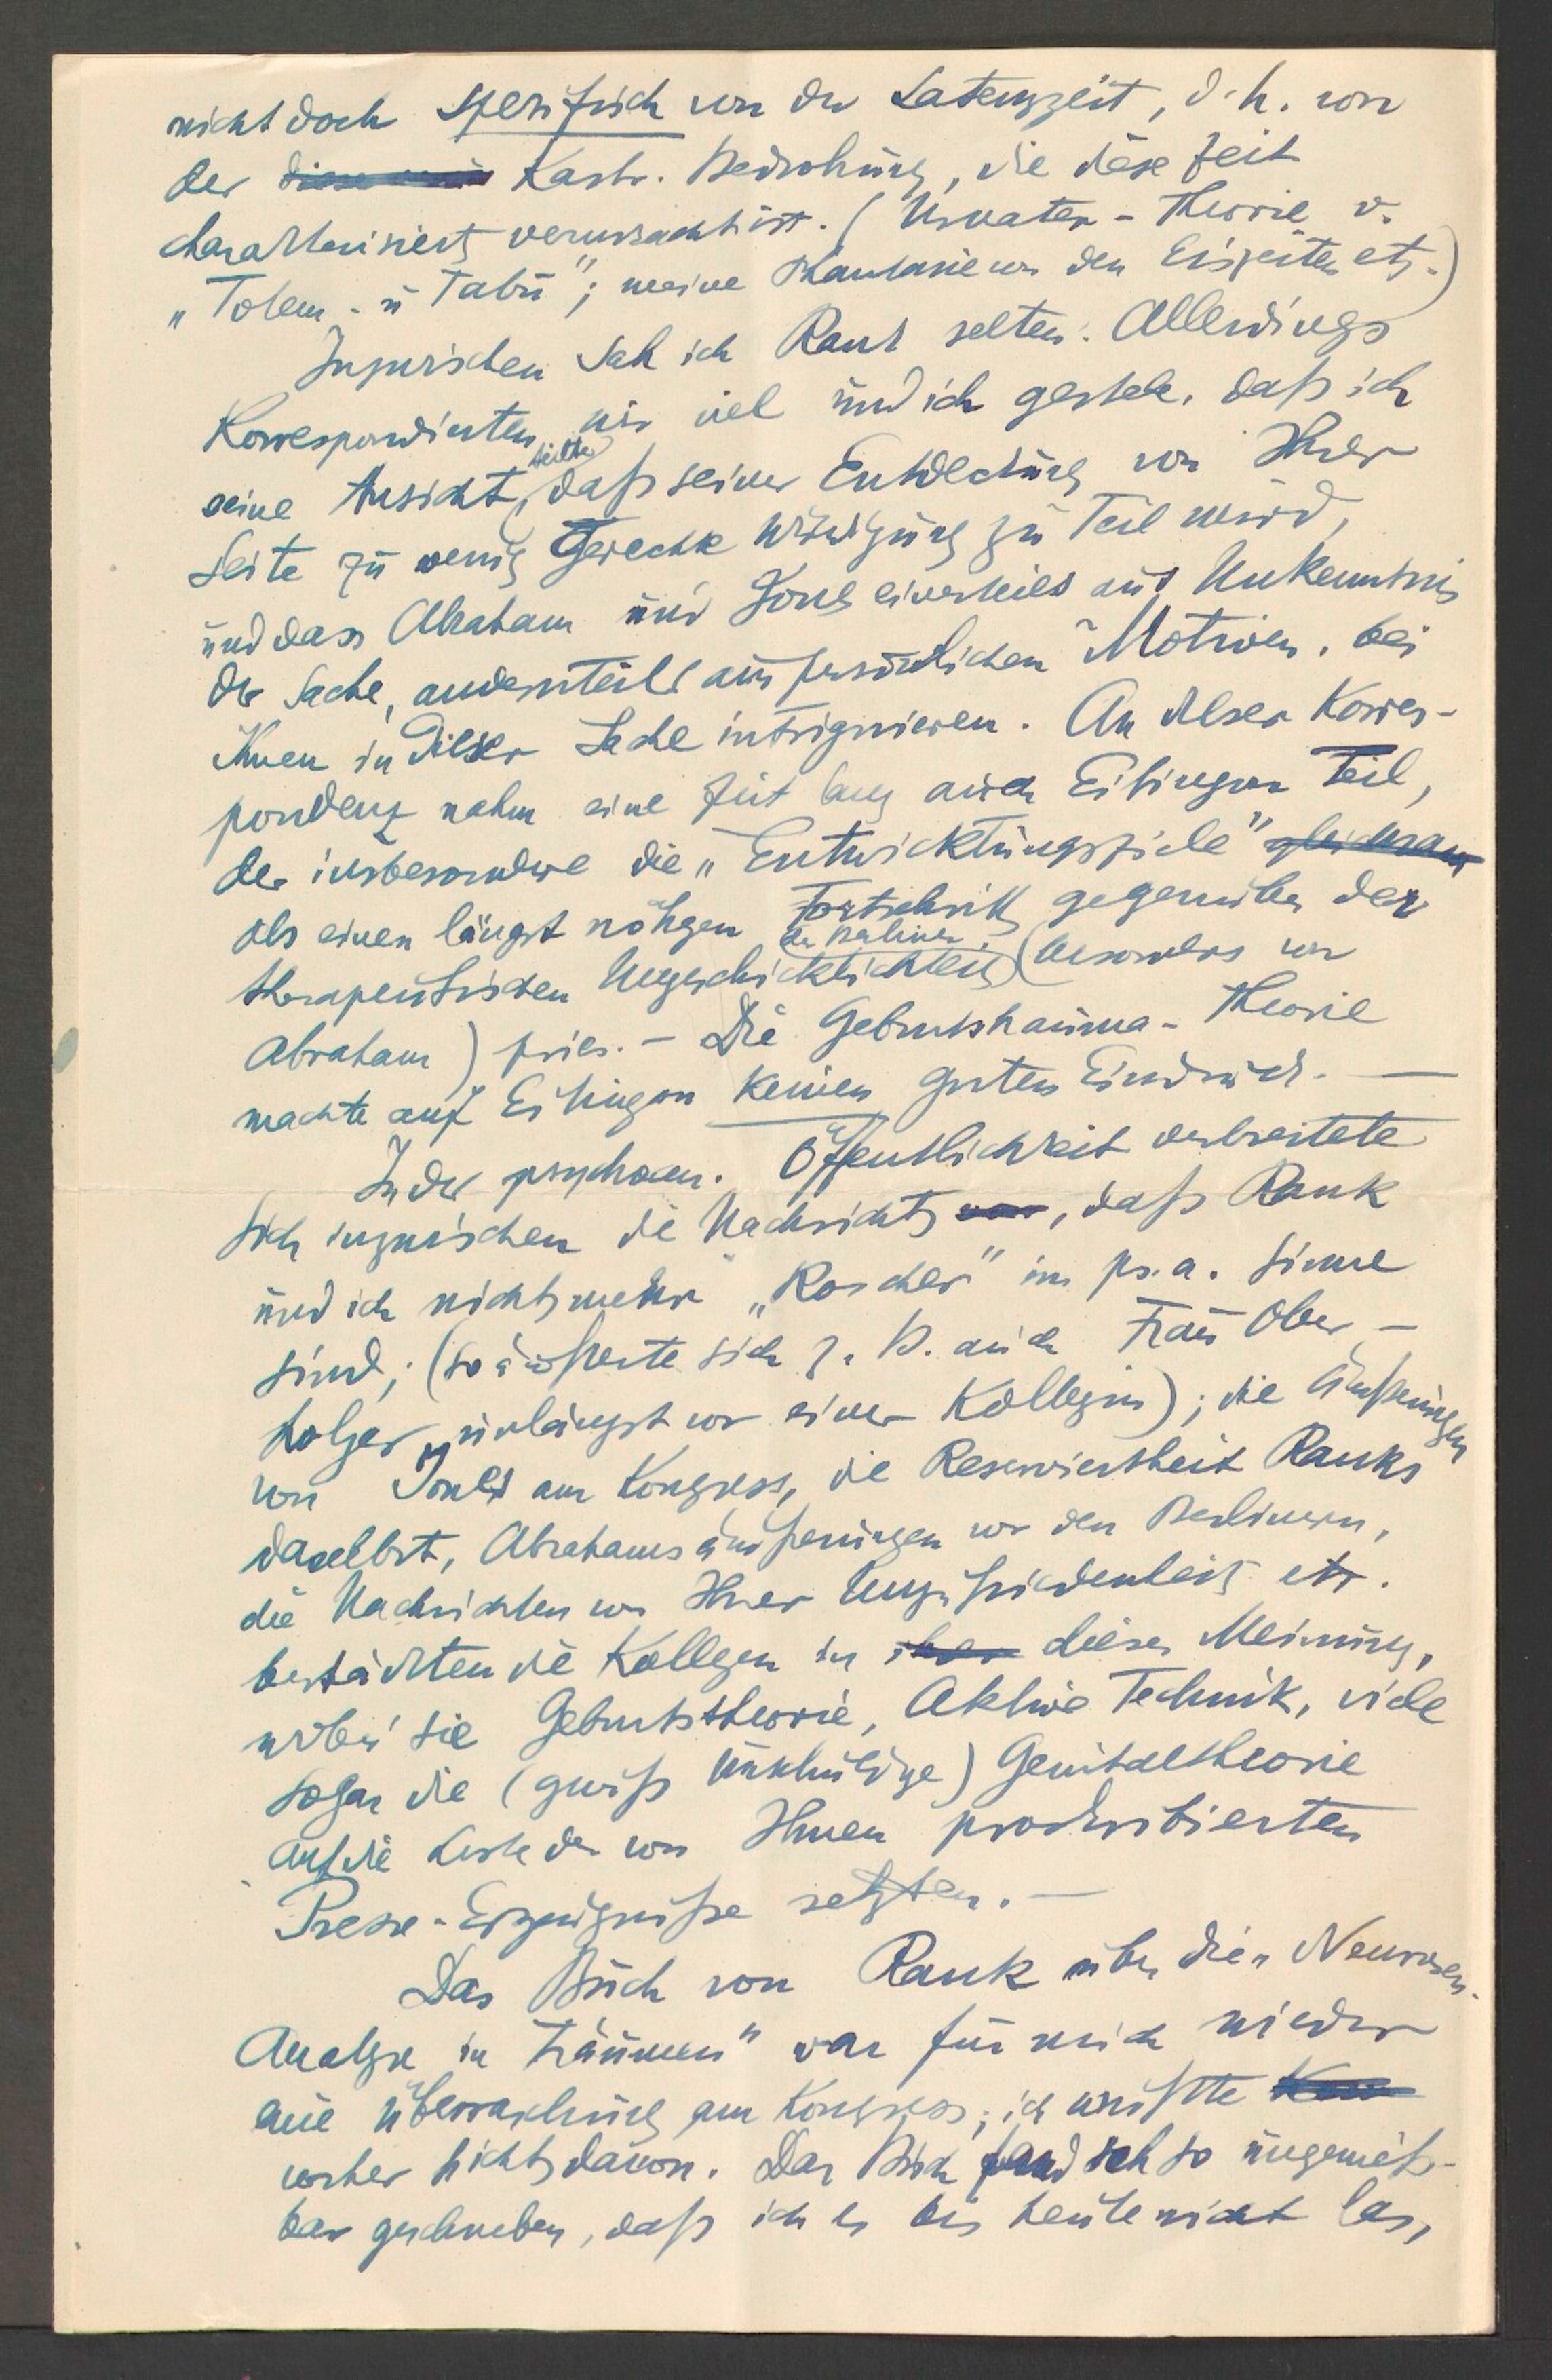 nicht doch spezifisch von der Latenzzeit, d. h. von
der Kastr. Bedrohung, die diese Zeit
charakterisiert, verursacht ist. (Urvater-Theorie v.
„Totem u Tabu"; meine Phantasie von den Eiszeiten etz.)
Inzwischen sah ich Rank selten. Allerdings
korrespondierten wir viel und ich gestehe, daß ich
seine Ansicht teilte, daß seiner Entdeckung von Ihrer
Seite zu wenig gerechte Würdigung zu Teil wird,
und dass Abraham und Jones einesteils aus Unkenntnis
der Sache, andernteils aus persönlichen Motiven, bei
Ihnen in dieser Sache intriguieren. An dieser Korres-
pondenz nahm eine Zeit lang auch Eitingon Teil,
der insbesondere die „Entwicklungsziele" gleichsam
als einen längst nötigen Fortschritt gegenüber der
therapeutischen Ungeschicklichkeit der Berliner (besonders von
Abraham) pries. – Die Geburtstrauma-Theorie
machte auf Eitingon keinen guten Eindruck. —
In der psychoan. Öffentlichkeit verbreitete
sich inzwischen die Nachricht, daß Rank
und ich nicht mehr „Koscher" im ps.a. Sinne
sind; (so äußerte sich z. B. auch Frau Ober-
holzer unlängst vor einer Kollegin); die Äußerungen
von Jones am Kongress, die Reserviertheit Ranks
daselbst, Abrahams äußerungen vor den Berlinern,
die Nachrichten von Ihrer Unzufriedenheit etz.
bestärkten die Kollegen in dieser Meinung,
wobei sie Geburtstheorie, Aktive Technik, viele
sogar die (gewiß unschuldige) Genitaltheorie
auf die Liste der von Ihnen proskribierten
Presse-Erzeugniße setzten. —
Das Buch von Rank über die „Neurosen-
Analyse in Träumen" war für mich wieder
eine Überraschung am Kongress; ich wußte
vorher nichts davon. Das Buch fand ich so ungenieß-
bar geschrieben, daß ich es bis heute nicht las,